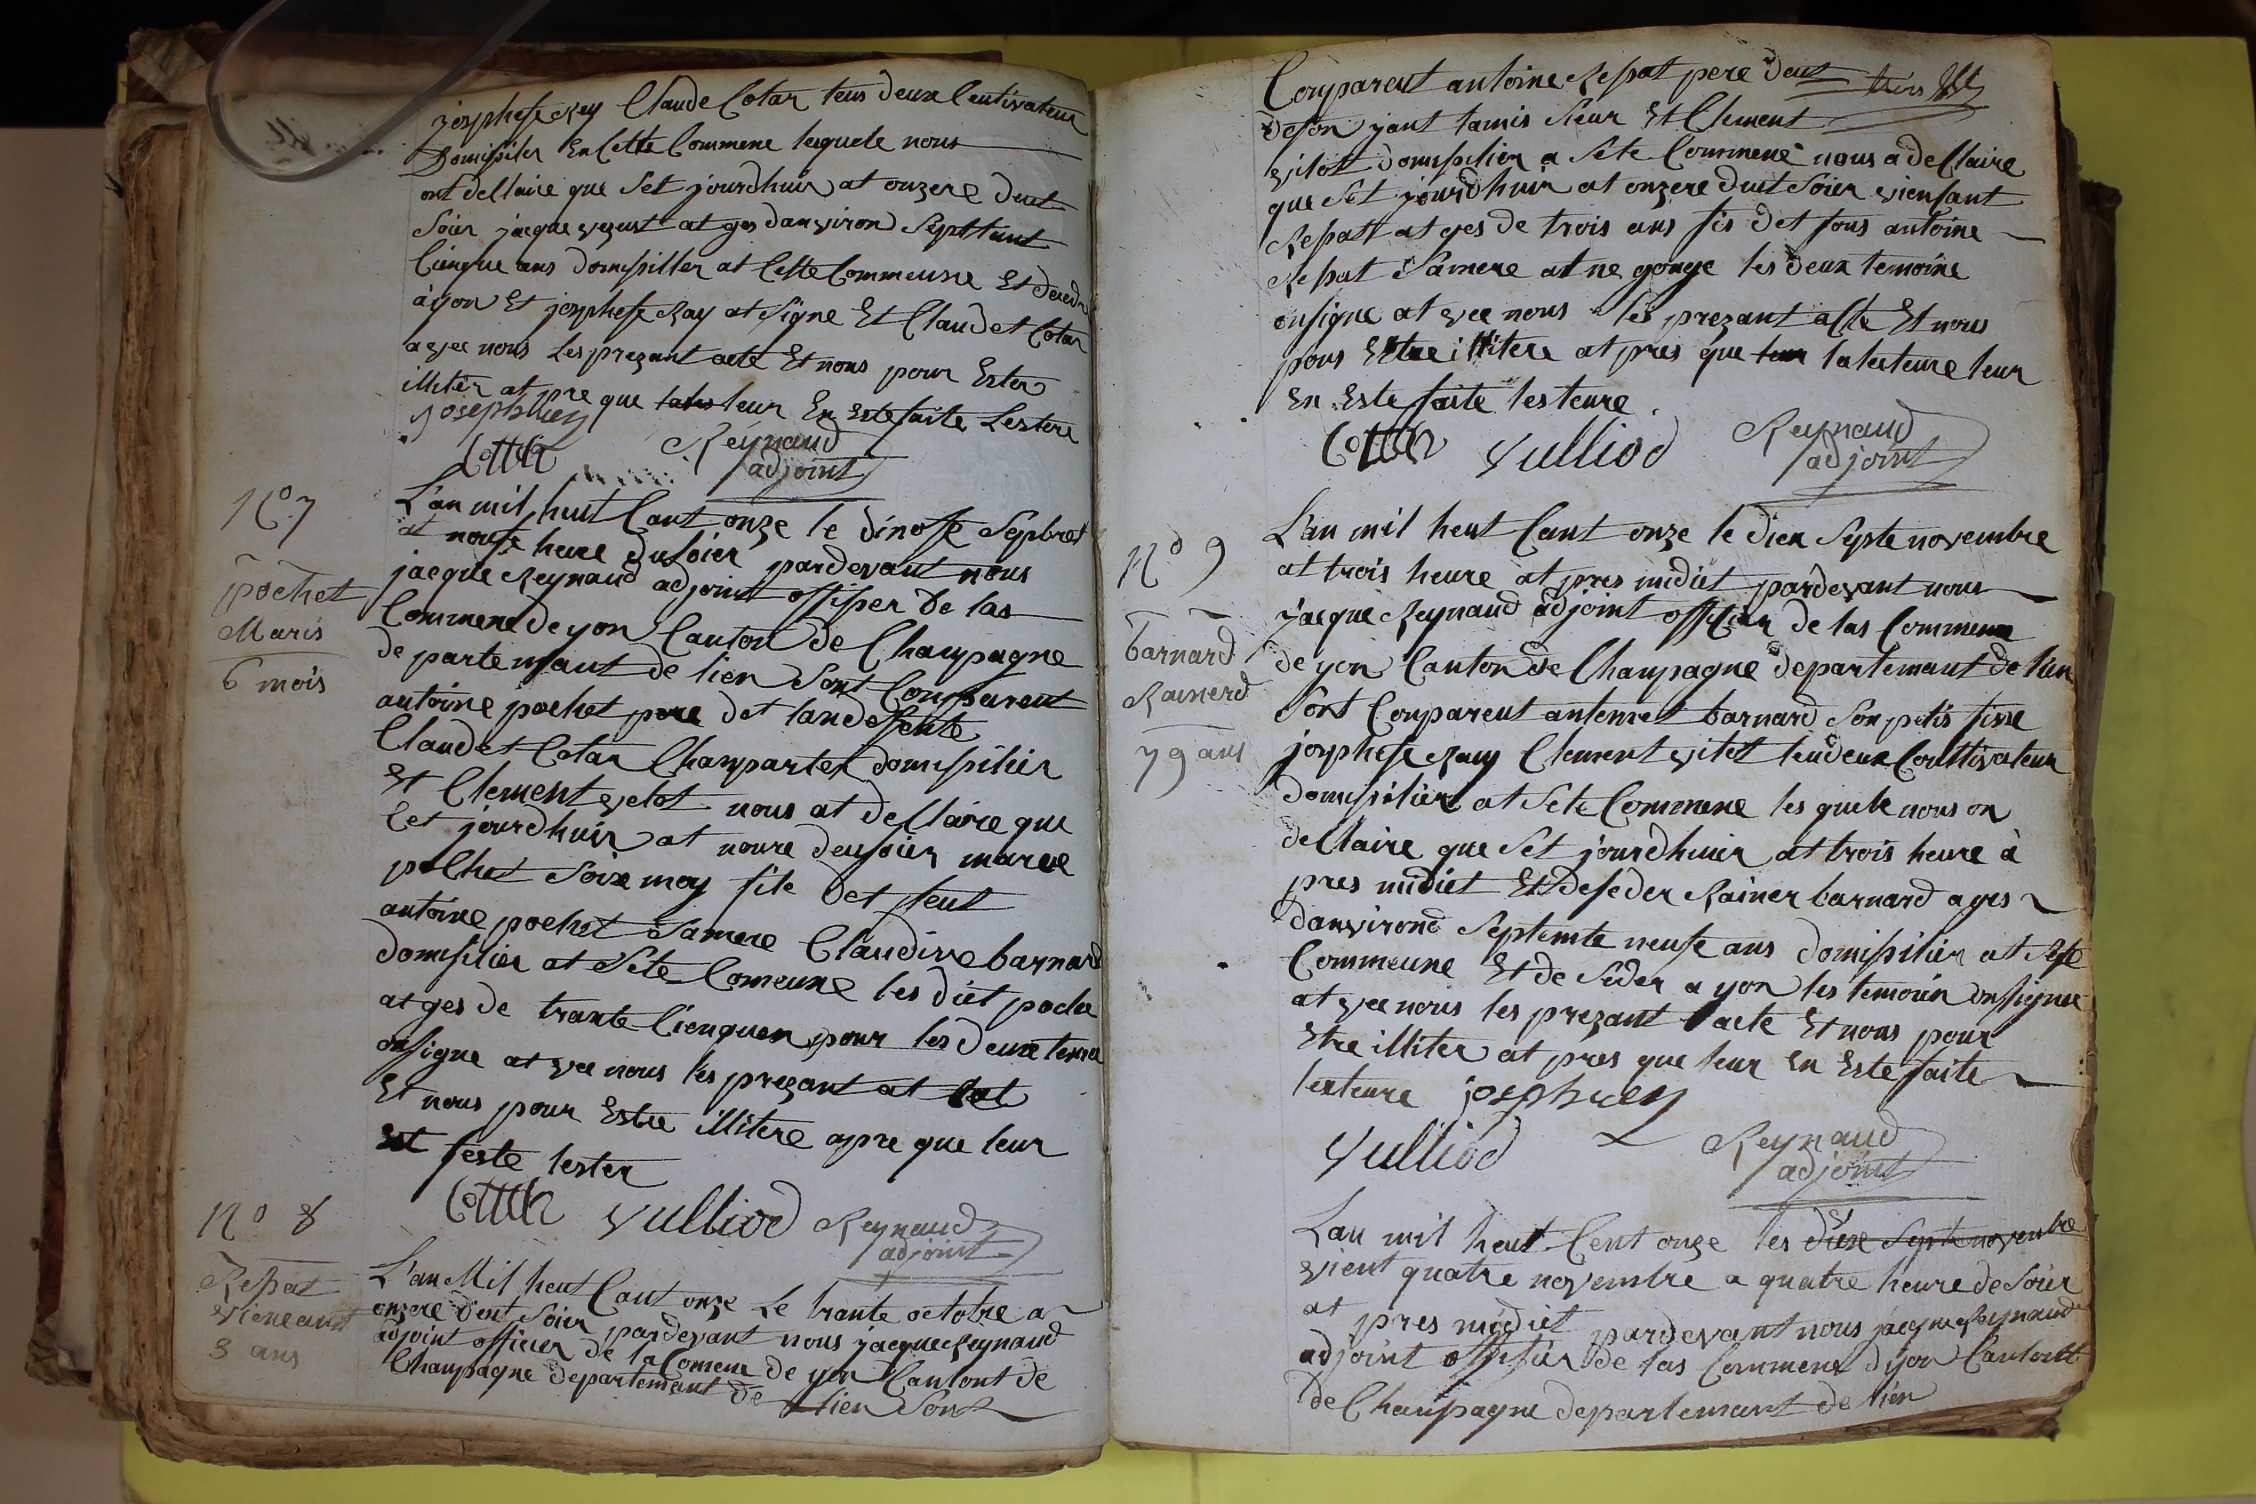 josphese Rey Claude Cotar tous deux Ceultivateur
Domisilier En Cette Commene lequele nous
ont dellaire que Set jourdhuir at onzere dut
Soier jacque vezust at ges danviron Septtant
Cienque ans domisiller at Cette Commeusne Et deced
a yon Et josphese Ray at Signe Et Claudet Cotar
avec nous Les prezant acte Et nous pour Ester
illiter at pre que leur En Este faite Lestere
Joseph Rey
Cotter Reynaud
adjoint
N° 7
pochet
Maris
6 mois
L'an mil heut Cant onze le dinose Sepbret
at nouse heure du Soier pardevant nous
jacque Reynaud adjoint offiser De las
Commene de yon Canton de Champagne
de partemant de lien Sont Comparent
antoine pochet pere det landessente
Claudet Cotar Charpartes domisilier
Et Clement velot nous at dellaire que
Cet jourdhuir at noure deusoier mareie
pochet Soixe moy file det feut
antoine pochet Samere Claudine barnard
domisilier at Sete Comeune les diet poche
at ges de trante Cienquen pour les deux temo
onsigne at vec nous les prezant at
Et nous pour Estre illitere apre que leur
Est feste lester
Cotter Vulliod Reynaud
adjoint
N° 8
Repat
vieneant
3 ans
L'an Mil heut Cant onze Le trante octobre a
onzere deut Soier pardevant nous jacque Reynaud
adjoint officier de la Comene de yon Cantont de
Champagne departemant de lien Sont
Comparent antoine Repat pere deut
deson yant lamis Sieur Et Clement
vilot domisilier a Sete Commene nous a dellaire
que Set jourdhuir at onzere dut Soier vienfant
Repatt at ges de trois ans fis det fous antoine
Repat Samere at ne gonye les deux temoine
onsigne at vec nous les prezant acte Et nous
pous Ettre illitere at pres que leur lalecteure leur
En Este faite lesteure
Cotter Vulliod Reynaud
adjoint
N° 9
barnard
Rainerd
79 ans
L'an mil heut Cant onze le dien Septe novembre
at trois heure at pres midiet pardevant nous
jacque Reynaud adjoint officier de las Commene
de yon Canton de Champagne departemant de lien
Sont Conparent antenret barnard Son petis fisse
josphese Ray Clement vitot teudeux Coultivateur
domisilier at Sete Commene les quele nous on
dellaire que Set jourdhuier at trois heure à
pres midiet Et deseder Rainer barnard a ges
danvirond Septente neufe ans domisilier at Sete
Commeune Et de Seder a yon les temoin onsigner
at vec nous les prezant acte Et nous pour
Etre illiter at pres que leur En Este faite
lecteure joseph Rey
Vulliod Reynaud
adjoint
L'an mil heut Cent onze les dixe Septe novembre
vient quatre novembre a quatre heure de Soier
at pres midiet pardevant nous jacque Reynaud
adjoint offisier de las Commene d yon Cantont
de Champagne departemant de lien